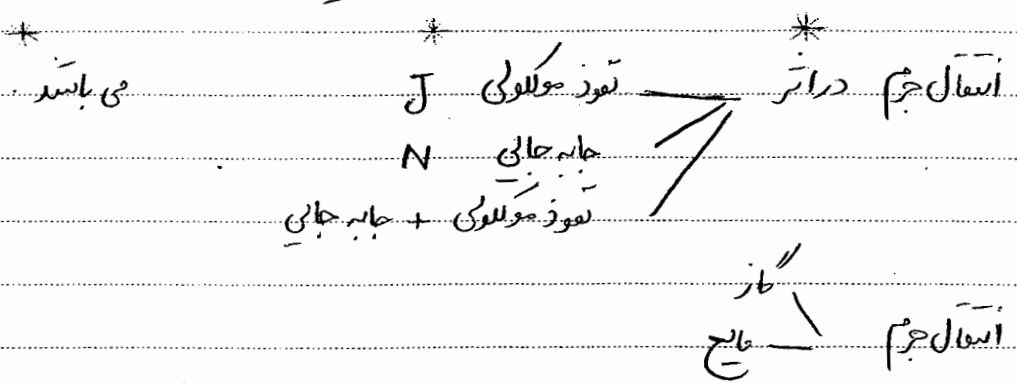 * * *
انتقال جرم در اثر نفوذ مولکولی J می باشد .
جابه جائی N
نفوذ مولکولی + جابه جائی
گاز
انتقال جرم
مایع